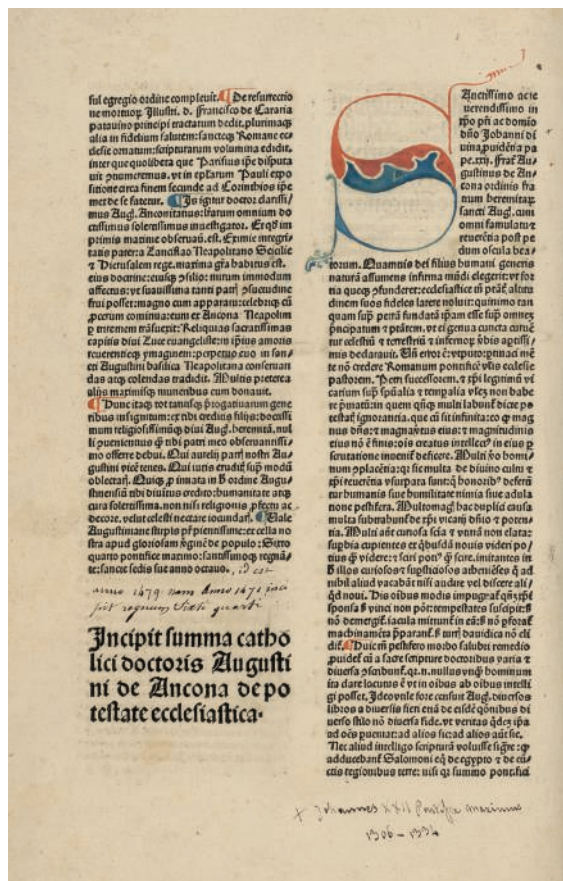 ful egregio ordine compleuit. De resurrectio
ne mortuoꝝ Illustri. d. Francisco de Cararia
patauino principi tractatum dedit. plurimaqꝫ
alia in fidelium salutem: sancteqꝫ Romane ec
clesie ornatum: scripturarum volumina edidit.
inter que quolibeta que Parisius ip̄e disputa
uit ꝯnumeremus. vt in ep̄larum Pauli expo
sitione circa finem secunde ad Corinthios ip̄e
met de se fatetur. Is igitur doctor clarissi/
mus Aug. Anconitanus: litarum omnium do
ctissimus solertissimus inuestigator.
primis maxime obseruan. est. Eximie integri/
tatis pater: a Zancislao Neapolitano Sicilie
⁊ Hierusalem rege. maxima gr̄a habitus est.
eius doctrine: eiusqꝫ ꝯsilio: mirum immodum
affectus: vt suauissima tanti patris ꝯsuetudine
frui posset: magno cum apparatu: celebriqꝫ cū
ꝓcerum comitiua: eum et Ancona Neapolim
ꝑ triremem trāsuexit: Reliquias sacratissimas
capitis diui Luce euangeliste: in ip̄ius amoris
reuerentieqꝫ ymaginem: perpetuo euo in san/
cti Augustini basilica Neapolitana conseruan
das atqꝫ colendas tradidit. Multis preterea
alijs maximisqꝫ muneribus eum donauit.
Hunc itaqꝫ tot tantisqꝫ p̄rogatiuarum gene
ribus insignitum: ex tibi creditis filijs: docessi
mum religiosissimūqꝫ diui Aug. heremitā. nul
li ꝓuenientius qꝫ tibi patri meo obseruantissi/
mo offerre debui. Qui aurelij patris nostri Au/
gustini vicē tenes. Qui iuris eruditis sup modū
oblectaris. Quiqꝫ ꝑ innata in hoc ordine Augu/
stinensiū tibi diuitus credito: humanitate atqꝫ
cura solertissima. non nisi religionis ꝓfectu ac
decore. velut celesti nectare iocundaris. Vale
Augustiniane stirpis p̄r pientissime: et ecclesia no
stra apud gloriosam ꝟginē de populo: Sixto
quarto pontifice maximo: sanctissimoqꝫ regnā/
te: sancte sedis sue anno octauo. id est
anno 1479 nam Anno 1471 inci
pit regnum Sixti quarti
Incipit summa catho
lici doctoris Augusti
ni de Ancona de po
testate ecclesiastica.
Sanctissimo ac re
uerendissimo in
xp̄o pr̄i ac domīo
dn̄o Iohanni di
uina ꝓuidētia pa
pe. xxij. Frat̄ Au/
gustinus de An/
cona ordinis fra
trum heremitaꝝ
sancti Aug. cum
omni famulatu ⁊
reuerētia post pe
dum oscula bea/
torum. Quamuis dei filius humani generis
naturā assumens infirma mūdi elegerit: vt for
tia queqꝫ ꝯfunderet: ecclesiastice tn̄ p̄tātis alti
dinem suos fideles latere noluit: quinimo tan
quam sup petrā fundatā ip̄am esse sup omnem
p̄ncipatum ⁊ p̄tātem. vt ei genua cuncta curuē
tur celestiū ⁊ terrestriū ⁊ infernoꝝ ꝟbis aptissi/
mis declarauit.
te nō credere Romanum pontificē vl̄is ecclesie
pastorem. Petri successorem. ⁊ xp̄i legitimū vi
carium sup spūalia ⁊ temporalia vl̄em non habe
re p̄matum:
testatis ignorantia. que cū sit infinita: eo qꝫ mag
nus dn̄s: ⁊ magna ꝟtus eius: ⁊ magnitudinis
eius nō ē finis: oīs creatus intellectus in eius ꝑ
scrutatione inuenitur deficere. Multi ꝟo homi/
num ꝯplacētia: qꝫ sic multa de diuino cultu ⁊
xp̄i reuerētia vsurpata sunt: qꝫ honoribus deferū
tur humanis siue humilitate nimia siue adula
tione pestifera.
multa subtrahunt̄ de xp̄i vicarij dn̄io ⁊ poten/
tia. Multi aut̄ curiosa sciā ⁊ vana non elata:
suphia cupientes
tius qꝫ videre: ⁊ sciri potius qꝫ scire. imitantes in
hoc illos curiosos ⁊ supsticiosos atheniēses qui ad
nihil aliud vacabāt nisi audire vel discere ali/
qd noui.
sponsa vinci non pōt: tempestates suscipit: sed
nō demergitur. iacula mittunt̄ in eā: sed nō ꝑforat̄
machinamēta p̄parant̄. sed turris dauidica nō eli
ditur. Huic tn̄ pestifero morbo salubri remedio
ꝓuidet̄ cū a sacre scripture doctoribus varia ⁊
diuersa ꝯscribunt̄.
ita dare locutus ē vt in oībus ab oībus intelli
gi posset. Ideo vtile fore censuit Aug. diuersos
libros a diuersis fieri etiā de eisdē qōnibus di
uerso stilo nō diuersa fide. vt veritas
ad oēs ꝑueniat: ad alios sic: ad alios aūt sic.
Nec aliud intelligo scripturā voluisse sig̅re: qꝫ
adducebant̄ Salomoni eq̄ de egypto ⁊ de cū/
ctis regionibus terre: nisi qꝫ summo pontifici
+ Johannes XXII Pontifex maximus
1306 - 1334